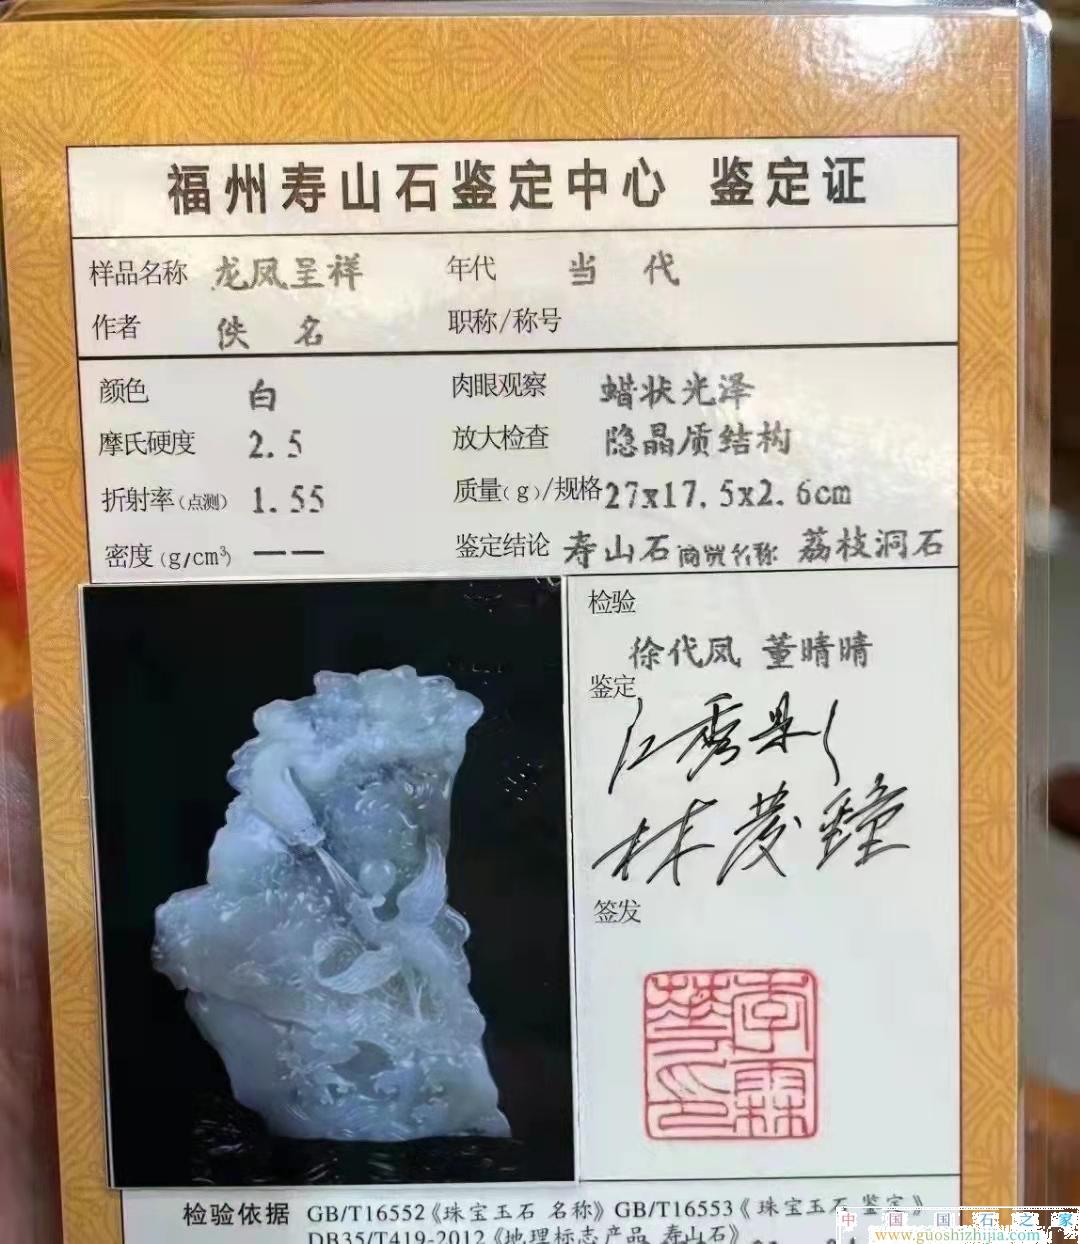 福州寿山石鉴定中心 鉴定证
样品名称 龙凤呈祥 年代 当 代
作者 佚 名 职称/称号
颜色 白 肉眼观察 蜡状光泽
摩氏硬度 2.5 放大检查 隐晶质结构
折射率(点测) 1.55 质量(g)/规格 27x17.5x2.6cm
密度(g/cm³) —— 鉴定结论 寿山石 商贸名称 荔枝洞石
检验
徐代凤 董晴晴
鉴定
林茂鐘
签发
检验依据 GB/T16552《珠宝玉石 名称》GB/T16553《珠宝玉石 鉴定》
DB35/T419-2012《地理标志产品 寿山石》
中国国石之家
www.guoshizhijia.com